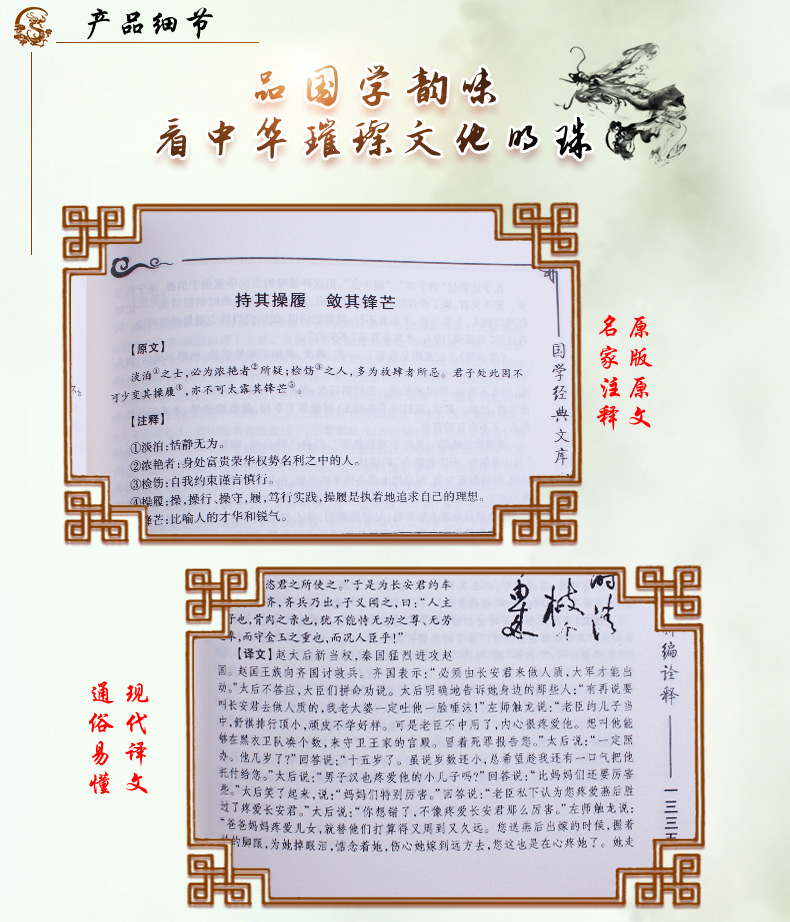 产品细节
品国学韵味
看中华璀璨文化明珠
持其操履 敛其锋芒
【原文】
淡泊①之士,必为浓艳者②所疑;检饬③之人,多为放肆者所忌。君子处此固不
可少变其操履④,亦不可太露其锋芒⑤。
【注释】
①淡泊:恬静无为。
②浓艳者:身处富贵荣华权势名利之中的人。
③检饬:自我约束谨言慎行。
④操履:操,操行、操守,履,笃行实践,操履是执着地追求自己的理想。
锋芒:比喻人的才华和锐气。
国学经典文库
原版原文
名家注释
恣君之所使之。”于是为长安君约车
齐,齐兵乃出,子义闻之,曰:“人主
子也,骨肉之亲也,犹不能恃无功之尊、无劳
奉,而守金玉之重也,而况人臣乎!”
【译文】赵太后新当权,秦国猛烈进攻赵
国。赵国王族向齐国讨救兵。齐国表示:“必须由长安君来做人质,大军才能出
动。”太后不答应,大臣们拼命劝说。太后明确地告诉她身边的那些人:“有再说要
叫长安君去做人质的,我老太婆一定吐他一脸唾沫!”左师触龙说:“老臣的儿子当
中,舒祺排行顶小,顽皮不学好样。可是老臣不中用了,内心很疼爱他。想叫他能
够在黑衣卫队凑个数,来守卫王家的宫殿。冒着死罪报告您。”太后说:“一定照
办。他几岁了?”回答说:“十五岁了。虽说岁数还小,总希望趁我还有一口气把他
托付给您。”太后说:“男子汉也疼爱他的小儿子吗?”回答说:“比妈妈们还要厉害
些。”太后笑了起来,说:“妈妈们特别厉害。”回答说:“老臣私下认为您疼爱燕后胜
过了疼爱长安君。”太后说:“你想错了,不像疼爱长安君那么厉害。”左师触龙说:
“爸爸妈妈疼爱儿女,就替他们打算得又周到又久远。您送燕后出嫁的时候,握着
的脚跟,为她掉眼泪,惦念着她,伤心她嫁到远方去,您这也是在心疼她了。她走
新编诠释
一三三五
现代译文
通俗易懂